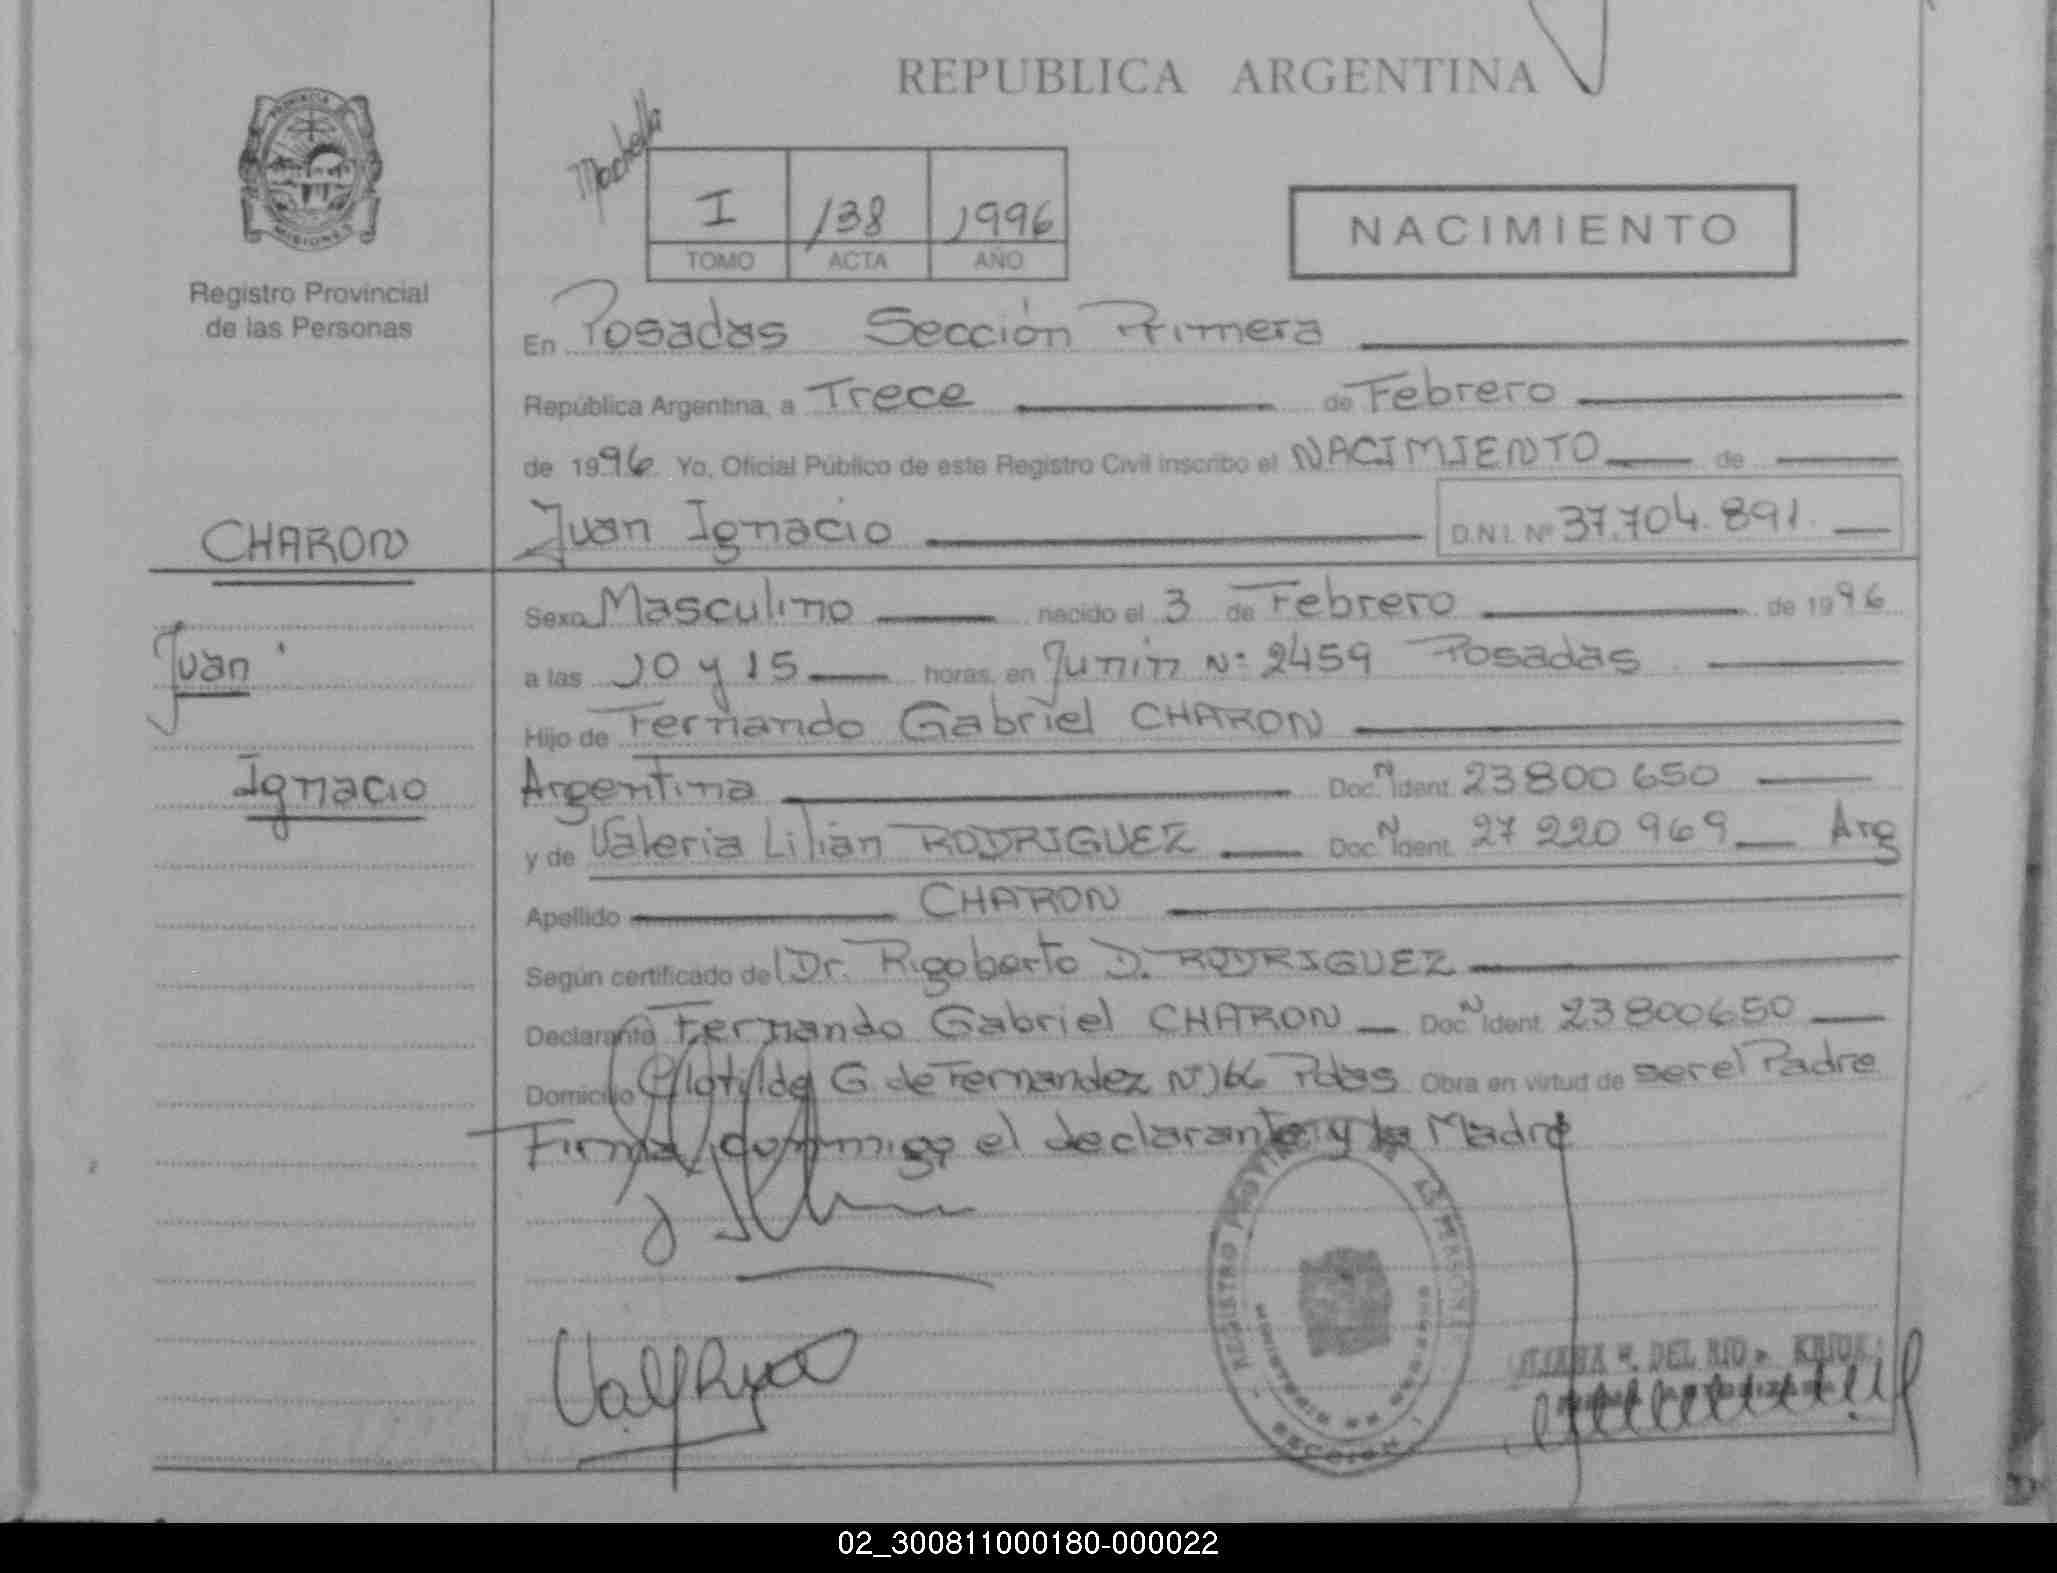 REPUBLICA ARGENTINA
PROVINCIA
MISIONES
Registro Provincial
de las Personas
I /38 1996
TOMO ACTA AÑO
NACIMIENTO
En Posadas Sección Primera
República Argentina, a Trece de Febrero
de 1996 Yo, Oficial Público de este Registro Civil inscribo el NACIMIENTO de
CHARON
Juan Ignacio D.N.I. Nº 37.704.891.
Sexo Masculino nacido el 3 de Febrero de 1996
Juan
a las 10 y 15 horas, en Junin Nº 2459 Posadas
Hijo de Fernando Gabriel CHARON
Ignacio
Argentina Doc. N Ident. 23800650
y de Valeria Lilián RODRIGUEZ Doc. N Ident. 27220969 Arg
Apellido CHARON
Según certificado del Dr. Rigoberto D. RODRIGUEZ
Declarante Fernando Gabriel CHARON Doc. N Ident. 23800650
Domicilio Clotilde G. de Fernandez Nº 166 Pdas Obra en virtud de ser el Padre
Firma conmigo el declarante y la Madre
REGISTRO
SECCION
DEL RIO
02_300811000180-000022